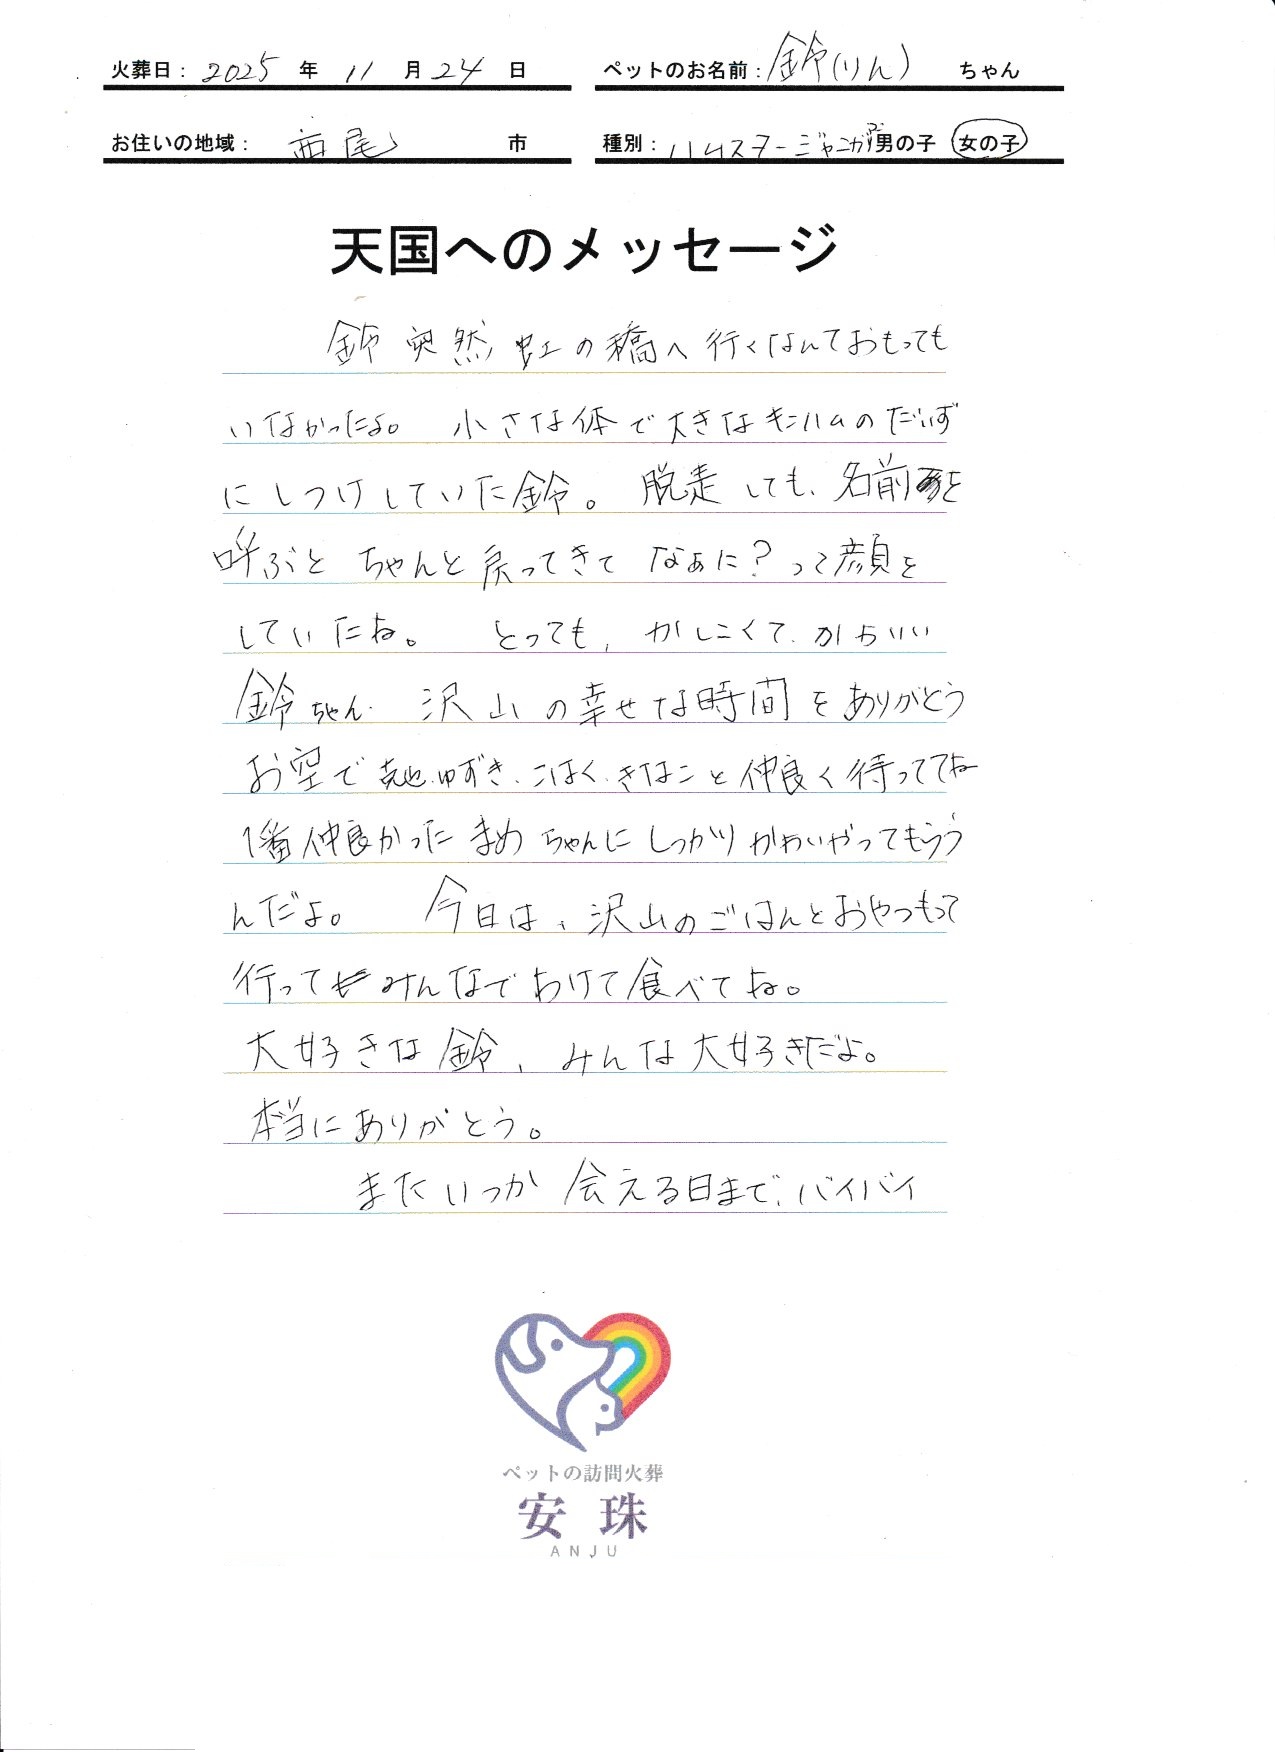 火葬日： 2025 年 11 月 24 日
ペットのお名前： 鈴(りん) ちゃん
お住いの地域： 西尾 市
種別： ハムスタージャンガリアン 男の子 女の子
天国へのメッセージ
鈴 突然 虹の橋へ行くなんておもっても
いなかったよ。 小さな体で大きなキンハムのだいず
にしつけしていた鈴。 脱走しても、名前を
呼ぶと ちゃんと戻ってきて なぁに？って顔を
していたね。 とっても、かしこくて、かわいい
鈴ちゃん 沢山の幸せな時間をありがとう
お空で ゆずき、こはく、きなこと仲良く待っててね
1番仲良かった まめ ちゃんにしっかりかわいがってもらう
んだよ。 今日は、沢山のごはんとおやつもって
行って みんなでわけて食べてね。
大好きな鈴、みんな大好きだよ。
本当にありがとう。
またいつか 会える日まで、バイバイ
ペットの訪問火葬
安珠
ANJU